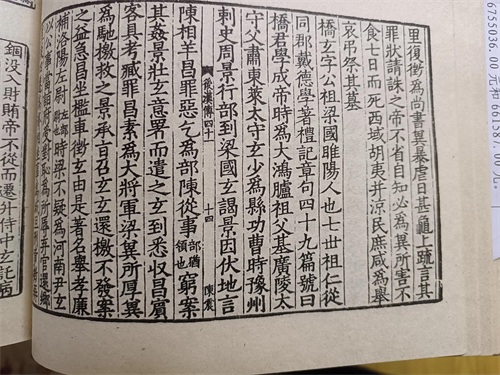 6755036.00元和661587.00元。
里復徵為尚書冀暴虐日甚龜上疏言其
罪狀請誅之帝不省自知必為冀所害不
食七日而死西域胡夷并涼民庶咸為舉
哀弔祭其墓
橋玄字公祖梁國睢陽人也七丗祖仁從
同郡戴德學著禮記章句四十九篇號曰
橋君學成帝時為大鴻臚祖父基廣陵太
守父肅東萊太守玄少為縣功曹時豫州
刺史周景行部到梁國玄謁景因伏地言
後漢傳四十一 十四 陳震
陳相羊昌罪惡乞為部陳從事部猶領也窮案
其姦景壯玄意署而遣之玄到悉收昌賓
客具考臧罪昌素為大將軍梁冀所厚冀
為馳檄救之景承旨召玄玄還檄不發案
之益急昌坐檻車徵玄由是著名舉孝廉
補洛陽左尉時梁不疑為河南尹玄
以公事當詣府受對恥為所辱弃官還鄉
錮没入財賄帝不從而遷升侍中玄託病